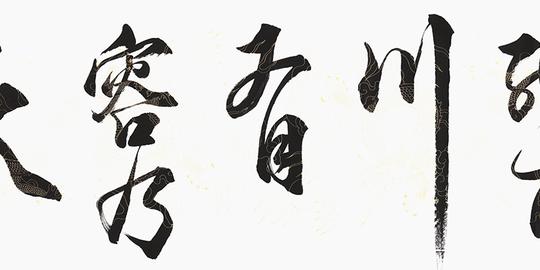 川
有
容乃